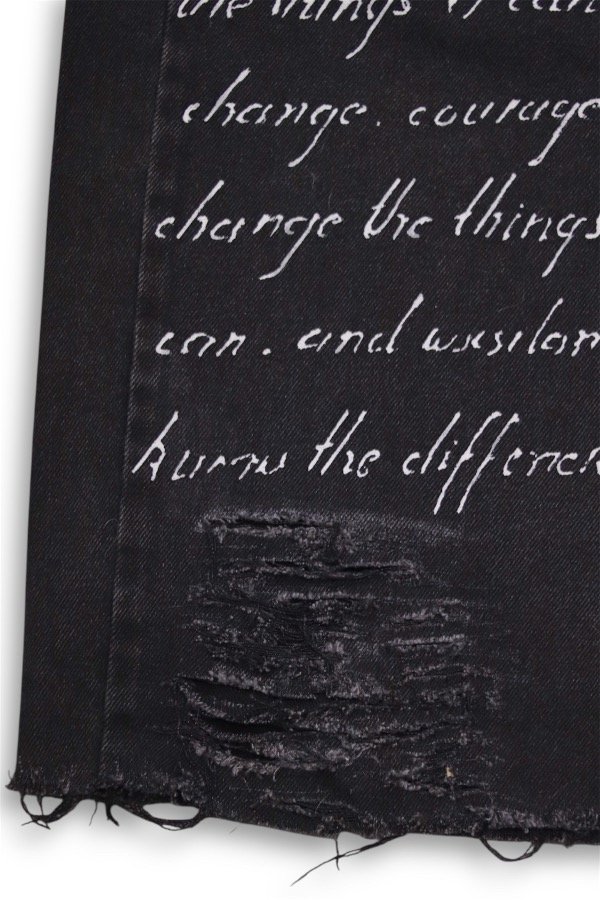 the things I can
change. courage
change the things
can. and wusdom
know the differenc